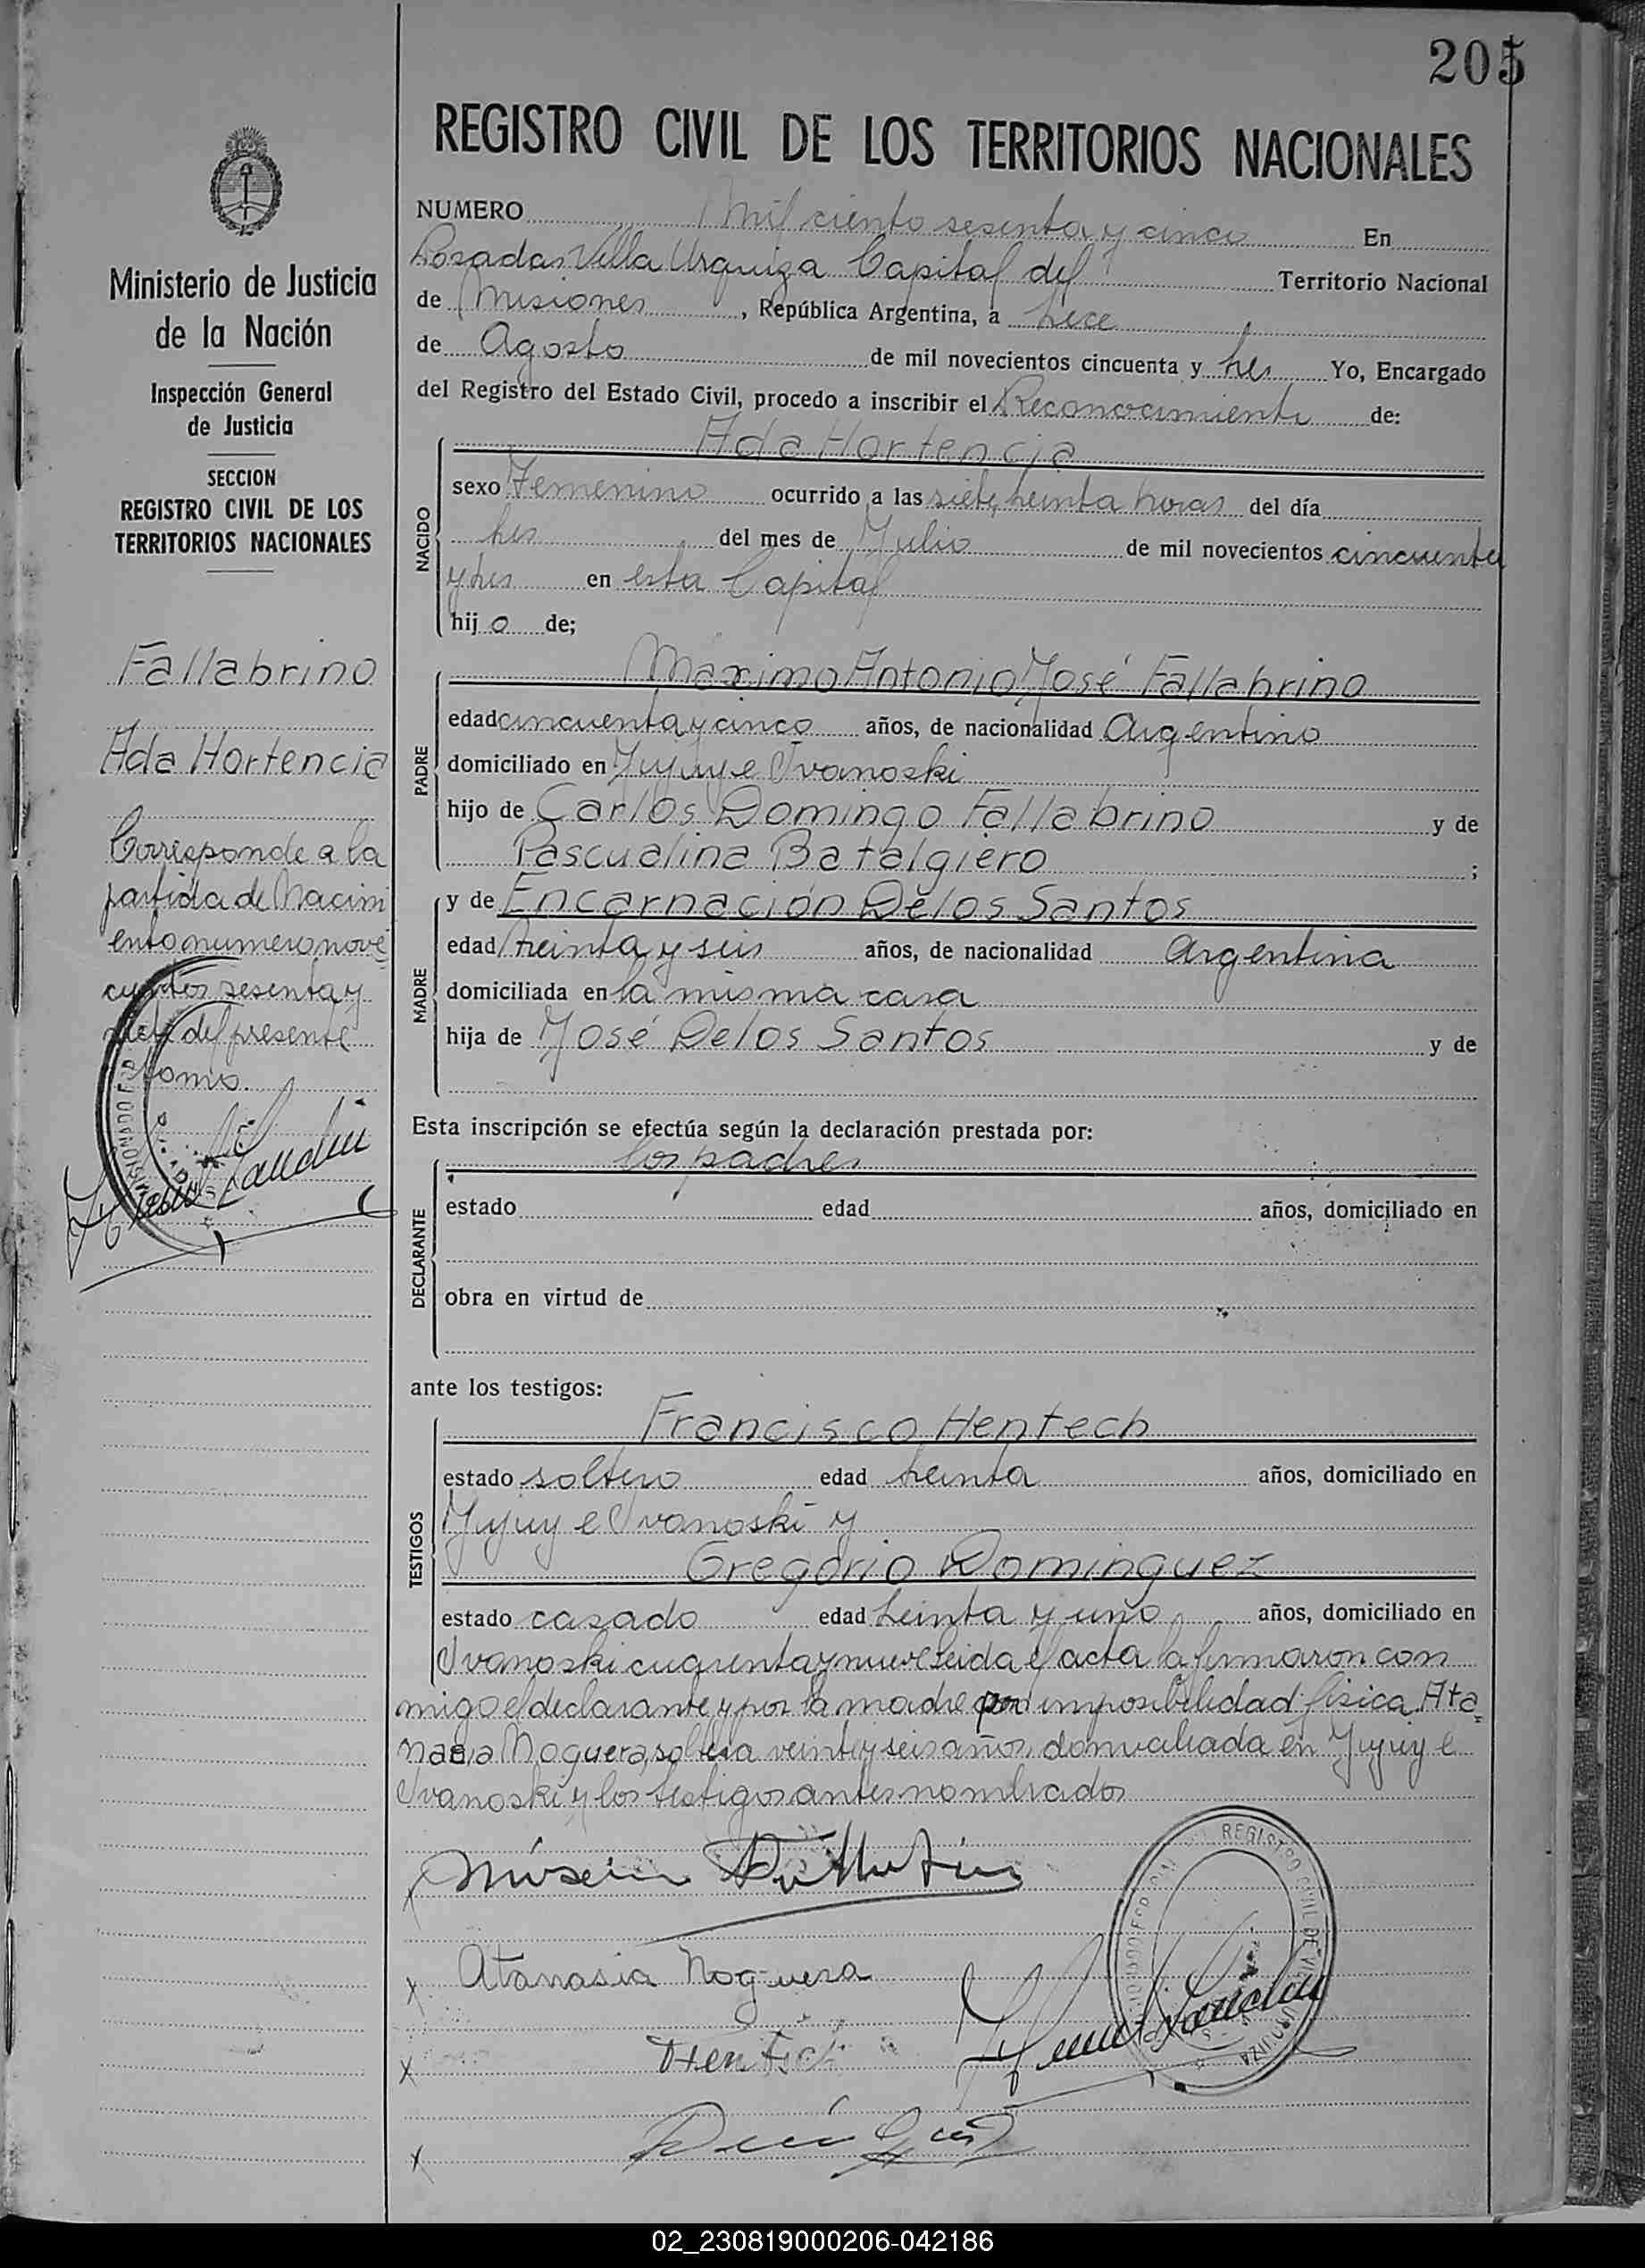 205
REGISTRO CIVIL DE LOS TERRITORIOS NACIONALES
NUMERO Mil ciento sesenta y cinco En
Posadas Villa Urquiza Capital del Territorio Nacional
de Misiones, República Argentina, a trece
de Agosto de mil novecientos cincuenta y tres Yo, Encargado
del Registro del Estado Civil, procedo a inscribir el Reconocimiento de:
Ada Hortencia
NACIDO
sexo Femenino ocurrido a las siete, treinta horas del día
tres del mes de Julio de mil novecientos cincuenta
y tres en esta Capital
hijo de;
Maximo Antonio José Fallabrino
PADRE
edad cincuenta y cinco años, de nacionalidad Argentino
domiciliado en Jujuy e Ivanoski
hijo de Carlos Domingo Fallabrino y de
Pascualina Batalgiero ;
y de Encarnación Delos Santos
MADRE
edad treinta y seis años, de nacionalidad Argentina
domiciliada en la misma casa
hija de José Delos Santos y de
Esta inscripción se efectúa según la declaración prestada por:
los padres
DECLARANTE
estado edad años, domiciliado en
obra en virtud de
ante los testigos:
Francisco Hentech
TESTIGOS
estado soltero edad treinta años, domiciliado en
Jujuy e Ivanoski y
Gregorio Dominguez
estado casado edad treinta y uno años, domiciliado en
Ivanoski cuarenta y nueve Leida el acta la firmaron con
migo el declarante y por la madre por imposibilidad fisica Ata
nasia Noguera, soltera veinte y seis años, domiciliada en Jujuy e
Ivanoski y los testigos antes nombrados
Atanasia Noguera
REGISTRO CIVIL DE VILLA URQUIZA
Ministerio de Justicia
de la Nación
Inspección General
de Justicia
SECCION
REGISTRO CIVIL DE LOS
TERRITORIOS NACIONALES
Fallabrino
Ada Hortencia
Corresponde a la
partida de Nacimi
ento numero nove
cientos sesenta y
del presente
tomo.
02_230819000206-042186